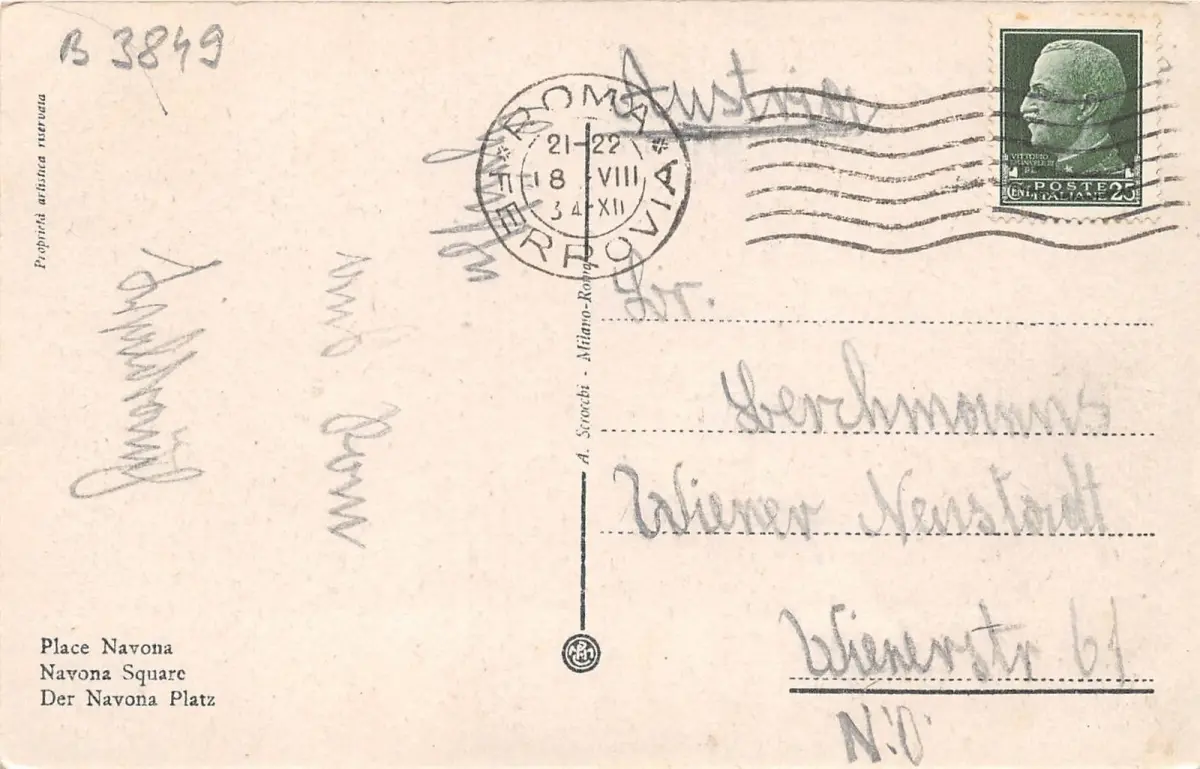 B 3849
Proprietà artistica riservata
ROMA
FERROVIA
21-22
18 VIII
34·XII
VITTORIO
POSTE
ITALIANE
CENT. 25
Austria
A. Scrocchi - Milano-Roma
Lerchmanns
Wiener Neustadt
Wienerstr 61
N.Ö.
Place Navona
Navona Square
Der Navona Platz